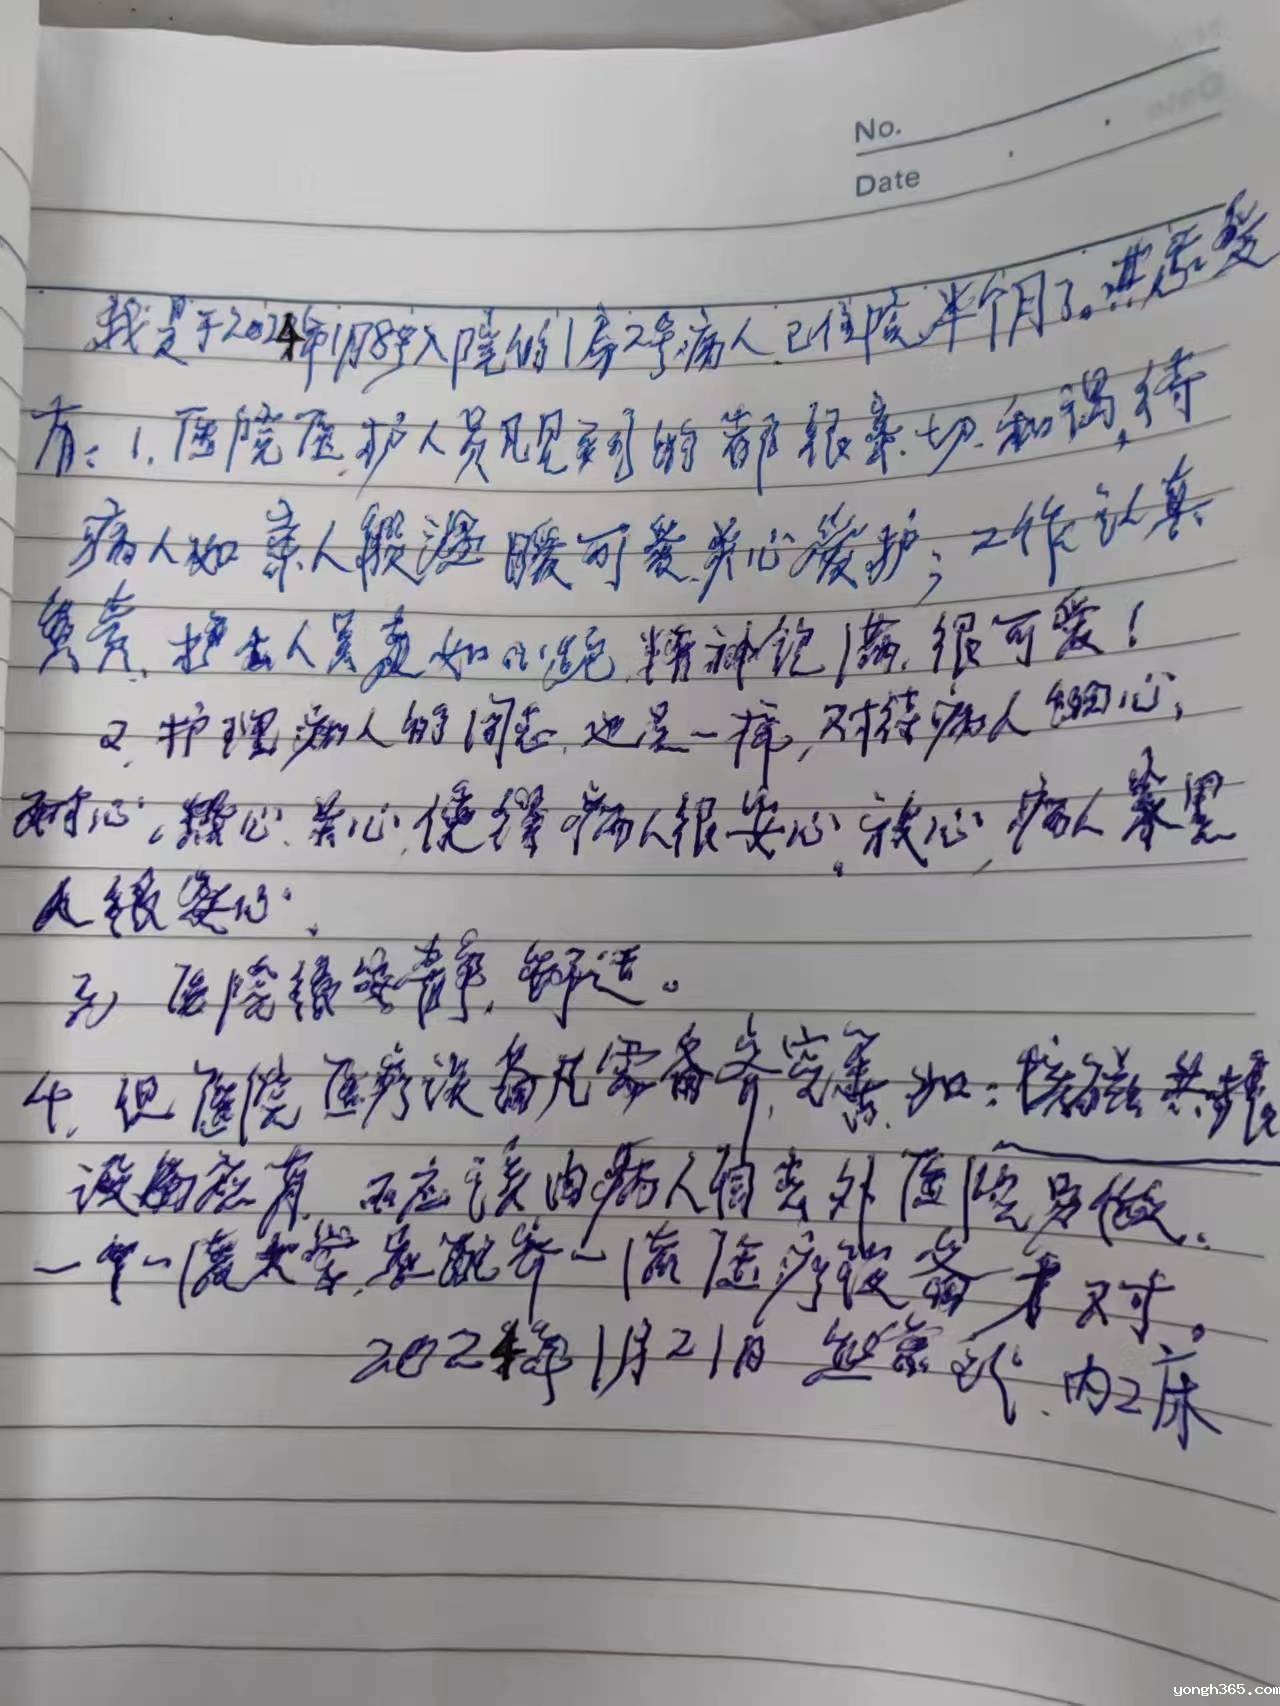 No.
Date
我是于2024年1月8号入院的1房2号病人,已住院半个月了。其感受
有:1.医院医护人员凡见到的都很亲切、和蔼,待
病人如亲人般温暖可爱、关心爱护;工作认真
负责,护士人员 精神饱满,很可爱!
2.护理病人的同志,也是一样,对待病人细心,
耐心,热心、关心,使得病人很安心,放心,病人家里
人很安心。
3)医院很安静,舒适。
4.但医院医疗设备凡需备齐,完善,如:核磁共振
设备应有,不应该由病人自去外医院另做,
一 一流 ,要配齐一流医疗设备才对。
2024年1月21日 内2床
yongh365.com